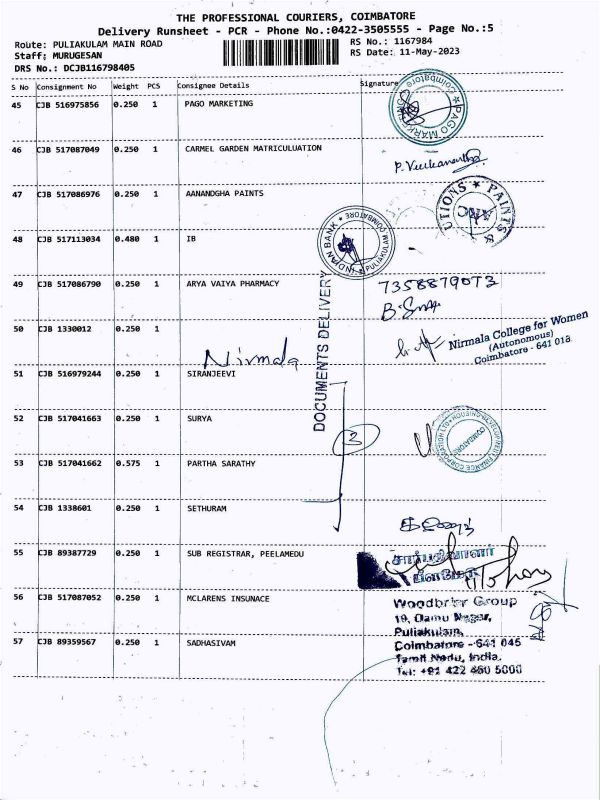 THE PROFESSIONAL COURIERS, COIMBATORE
Delivery Runsheet - PCR - Phone No.:0422-3505555 - Page No.:5
Route: PULIAKULAM MAIN ROAD
RS No.: 1167984
Staff: MURUGESAN
RS Date: 11-May-2023
DRS No.: DCJB116798405
S No Consignment No Weight PCS Consignee Details Signature
45 CJB 516975856 0.250 1 PAGO MARKETING
46 CJB 517087049 0.250 1 CARMEL GARDEN MATRICULUATION
47 CJB 517086976 0.250 1 AANANDGHA PAINTS
48 CJB 517113034 0.480 1 IB
INDIAN BANK * PULIAKULAM COIMBATORE
49 CJB 517086790 0.250 1 ARYA VAIYA PHARMACY
7358879073
DOCUMENTS DELIVERY
50 CJB 1330012 0.250 1
Nirmala
Nirmala College for Women
(Autonomous)
Coimbatore - 641 018.
51 CJB 516979244 0.250 1 SIRANJEEVI
52 CJB 517041663 0.250 1 SURYA
3
HOUSING DEVELOPMENT FINANCE CORPORATION LTD
COIMBATORE
53 CJB 517041662 0.575 1 PARTHA SARATHY
54 CJB 1338601 0.250 1 SETHURAM
55 CJB 89387729 0.250 1 SUB REGISTRAR, PEELAMEDU
சார்பதிவாளர்
பீளமேடு
56 CJB 517087052 0.250 1 MCLARENS INSUNACE
Woodbriar Group
19, Damu Nagar,
Puliakulam,
Coimbatore - 641 045
57 CJB 89359567 0.250 1 SADHASIVAM
Tamil Nadu, India.
Tel: +91 422 460 5000